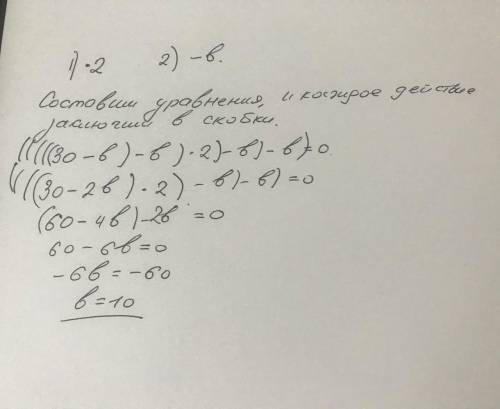 1) ·2 2) -в.
Составим уравнения, и каждое действие
заключим в скобки.
(((((30-в)-в)·2)-в)-в)=0
((((30-2в)·2)-в)-в)=0
(60-4в)-2в=0
60-6в=0
-6в=-60
в=10